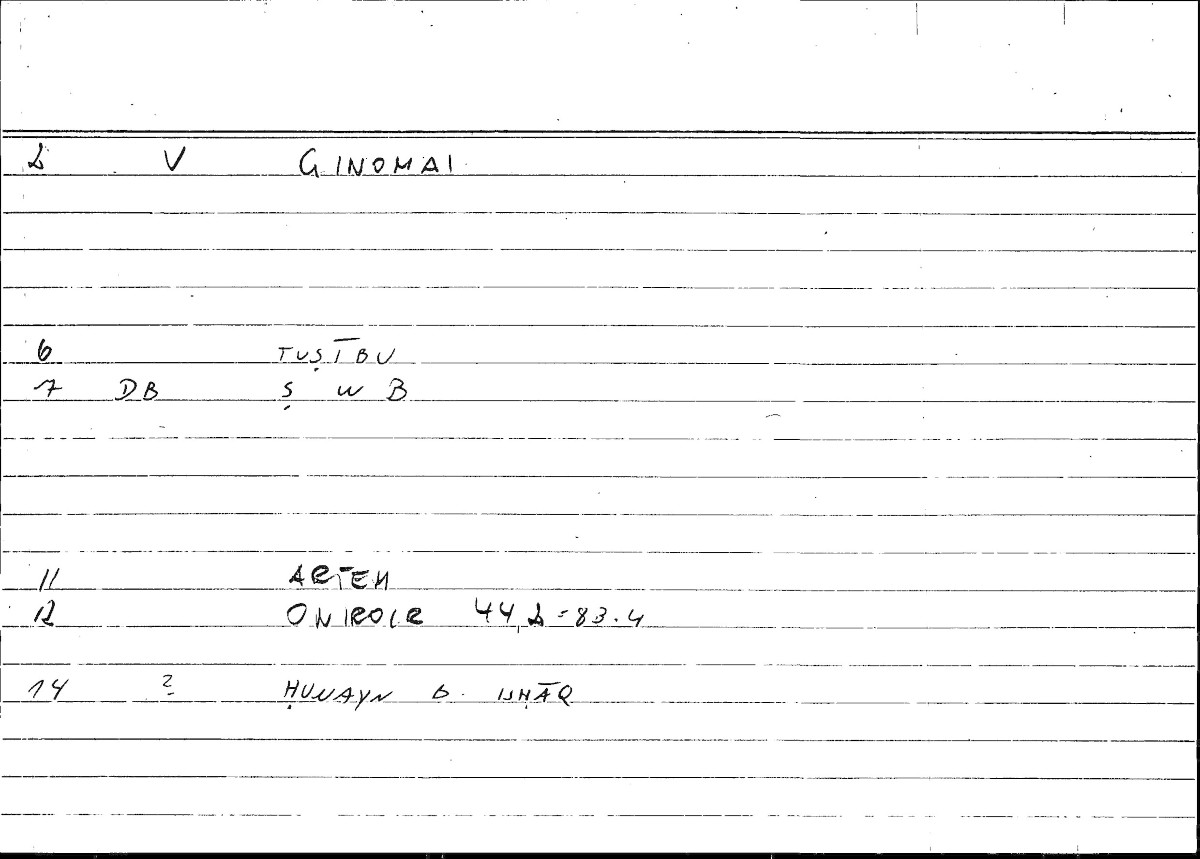 2 V GINOMAI
6 TUṢĪBU
7 DB Ṣ W B
11 ARTEM
12 ONIROCR 44,2 = 83.4
14 2 ḤUNAYN b. ISḤĀQ